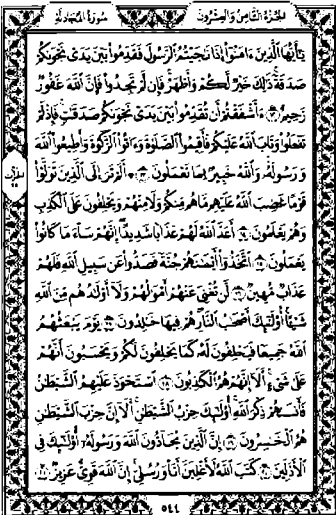 سورة المجادلة الجزء الثامن والعشرون
يَٰٓأَيُّهَا ٱلَّذِينَ ءَامَنُوٓا۟ إِذَا نَٰجَيْتُمُ ٱلرَّسُولَ فَقَدِّمُوا۟ بَيْنَ يَدَىْ نَجْوَىٰكُمْ
صَدَقَةً ذَٰلِكَ خَيْرٌ لَّكُمْ وَأَطْهَرُ فَإِن لَّمْ تَجِدُوا۟ فَإِنَّ ٱللَّهَ غَفُورٌ
رَّحِيمٌ ١٢ ءَأَشْفَقْتُمْ أَن تُقَدِّمُوا۟ بَيْنَ يَدَىْ نَجْوَىٰكُمْ صَدَقَٰتٍ فَإِذْ لَمْ
تَفْعَلُوا۟ وَتَابَ ٱللَّهُ عَلَيْكُمْ فَأَقِيمُوا۟ ٱلصَّلَوٰةَ وَءَاتُوا۟ ٱلزَّكَوٰةَ وَأَطِيعُوا۟ ٱللَّهَ
وَرَسُولَهُۥ وَٱللَّهُ خَبِيرٌۢ بِمَا تَعْمَلُونَ ١٣ أَلَمْ تَرَ إِلَى ٱلَّذِينَ تَوَلَّوْا۟
قَوْمًا غَضِبَ ٱللَّهُ عَلَيْهِم مَّا هُم مِّنكُمْ وَلَا مِنْهُمْ وَيَحْلِفُونَ عَلَى ٱلْكَذِبِ
وَهُمْ يَعْلَمُونَ ١٤ أَعَدَّ ٱللَّهُ لَهُمْ عَذَابًا شَدِيدًا إِنَّهُمْ سَآءَ مَا كَانُوا۟
يَعْمَلُونَ ١٥ ٱتَّخَذُوٓا۟ أَيْمَٰنَهُمْ جُنَّةً فَصَدُّوا۟ عَن سَبِيلِ ٱللَّهِ فَلَهُمْ
عَذَابٌ مُّهِينٌ ١٦ لَّن تُغْنِىَ عَنْهُمْ أَمْوَٰلُهُمْ وَلَآ أَوْلَٰدُهُم مِّنَ ٱللَّهِ
شَيْـًٔا أُو۟لَٰٓئِكَ أَصْحَٰبُ ٱلنَّارِ هُمْ فِيهَا خَٰلِدُونَ ١٧ يَوْمَ يَبْعَثُهُمُ
ٱللَّهُ جَمِيعًا فَيَحْلِفُونَ لَهُۥ كَمَا يَحْلِفُونَ لَكُمْ وَيَحْسَبُونَ أَنَّهُمْ
عَلَىٰ شَىْءٍ أَلَآ إِنَّهُمْ هُمُ ٱلْكَٰذِبُونَ ١٨ ٱسْتَحْوَذَ عَلَيْهِمُ ٱلشَّيْطَٰنُ
فَأَنسَىٰهُمْ ذِكْرَ ٱللَّهِ أُو۟لَٰٓئِكَ حِزْبُ ٱلشَّيْطَٰنِ أَلَآ إِنَّ حِزْبَ ٱلشَّيْطَٰنِ
هُمُ ٱلْخَٰسِرُونَ ١٩ إِنَّ ٱلَّذِينَ يُحَآدُّونَ ٱللَّهَ وَرَسُولَهُۥٓ أُو۟لَٰٓئِكَ فِى
ٱلْأَذَلِّينَ ٢٠ كَتَبَ ٱللَّهُ لَأَغْلِبَنَّ أَنَا۠ وَرُسُلِىٓ إِنَّ ٱللَّهَ قَوِىٌّ عَزِيزٌ ٢١
٥٤٤